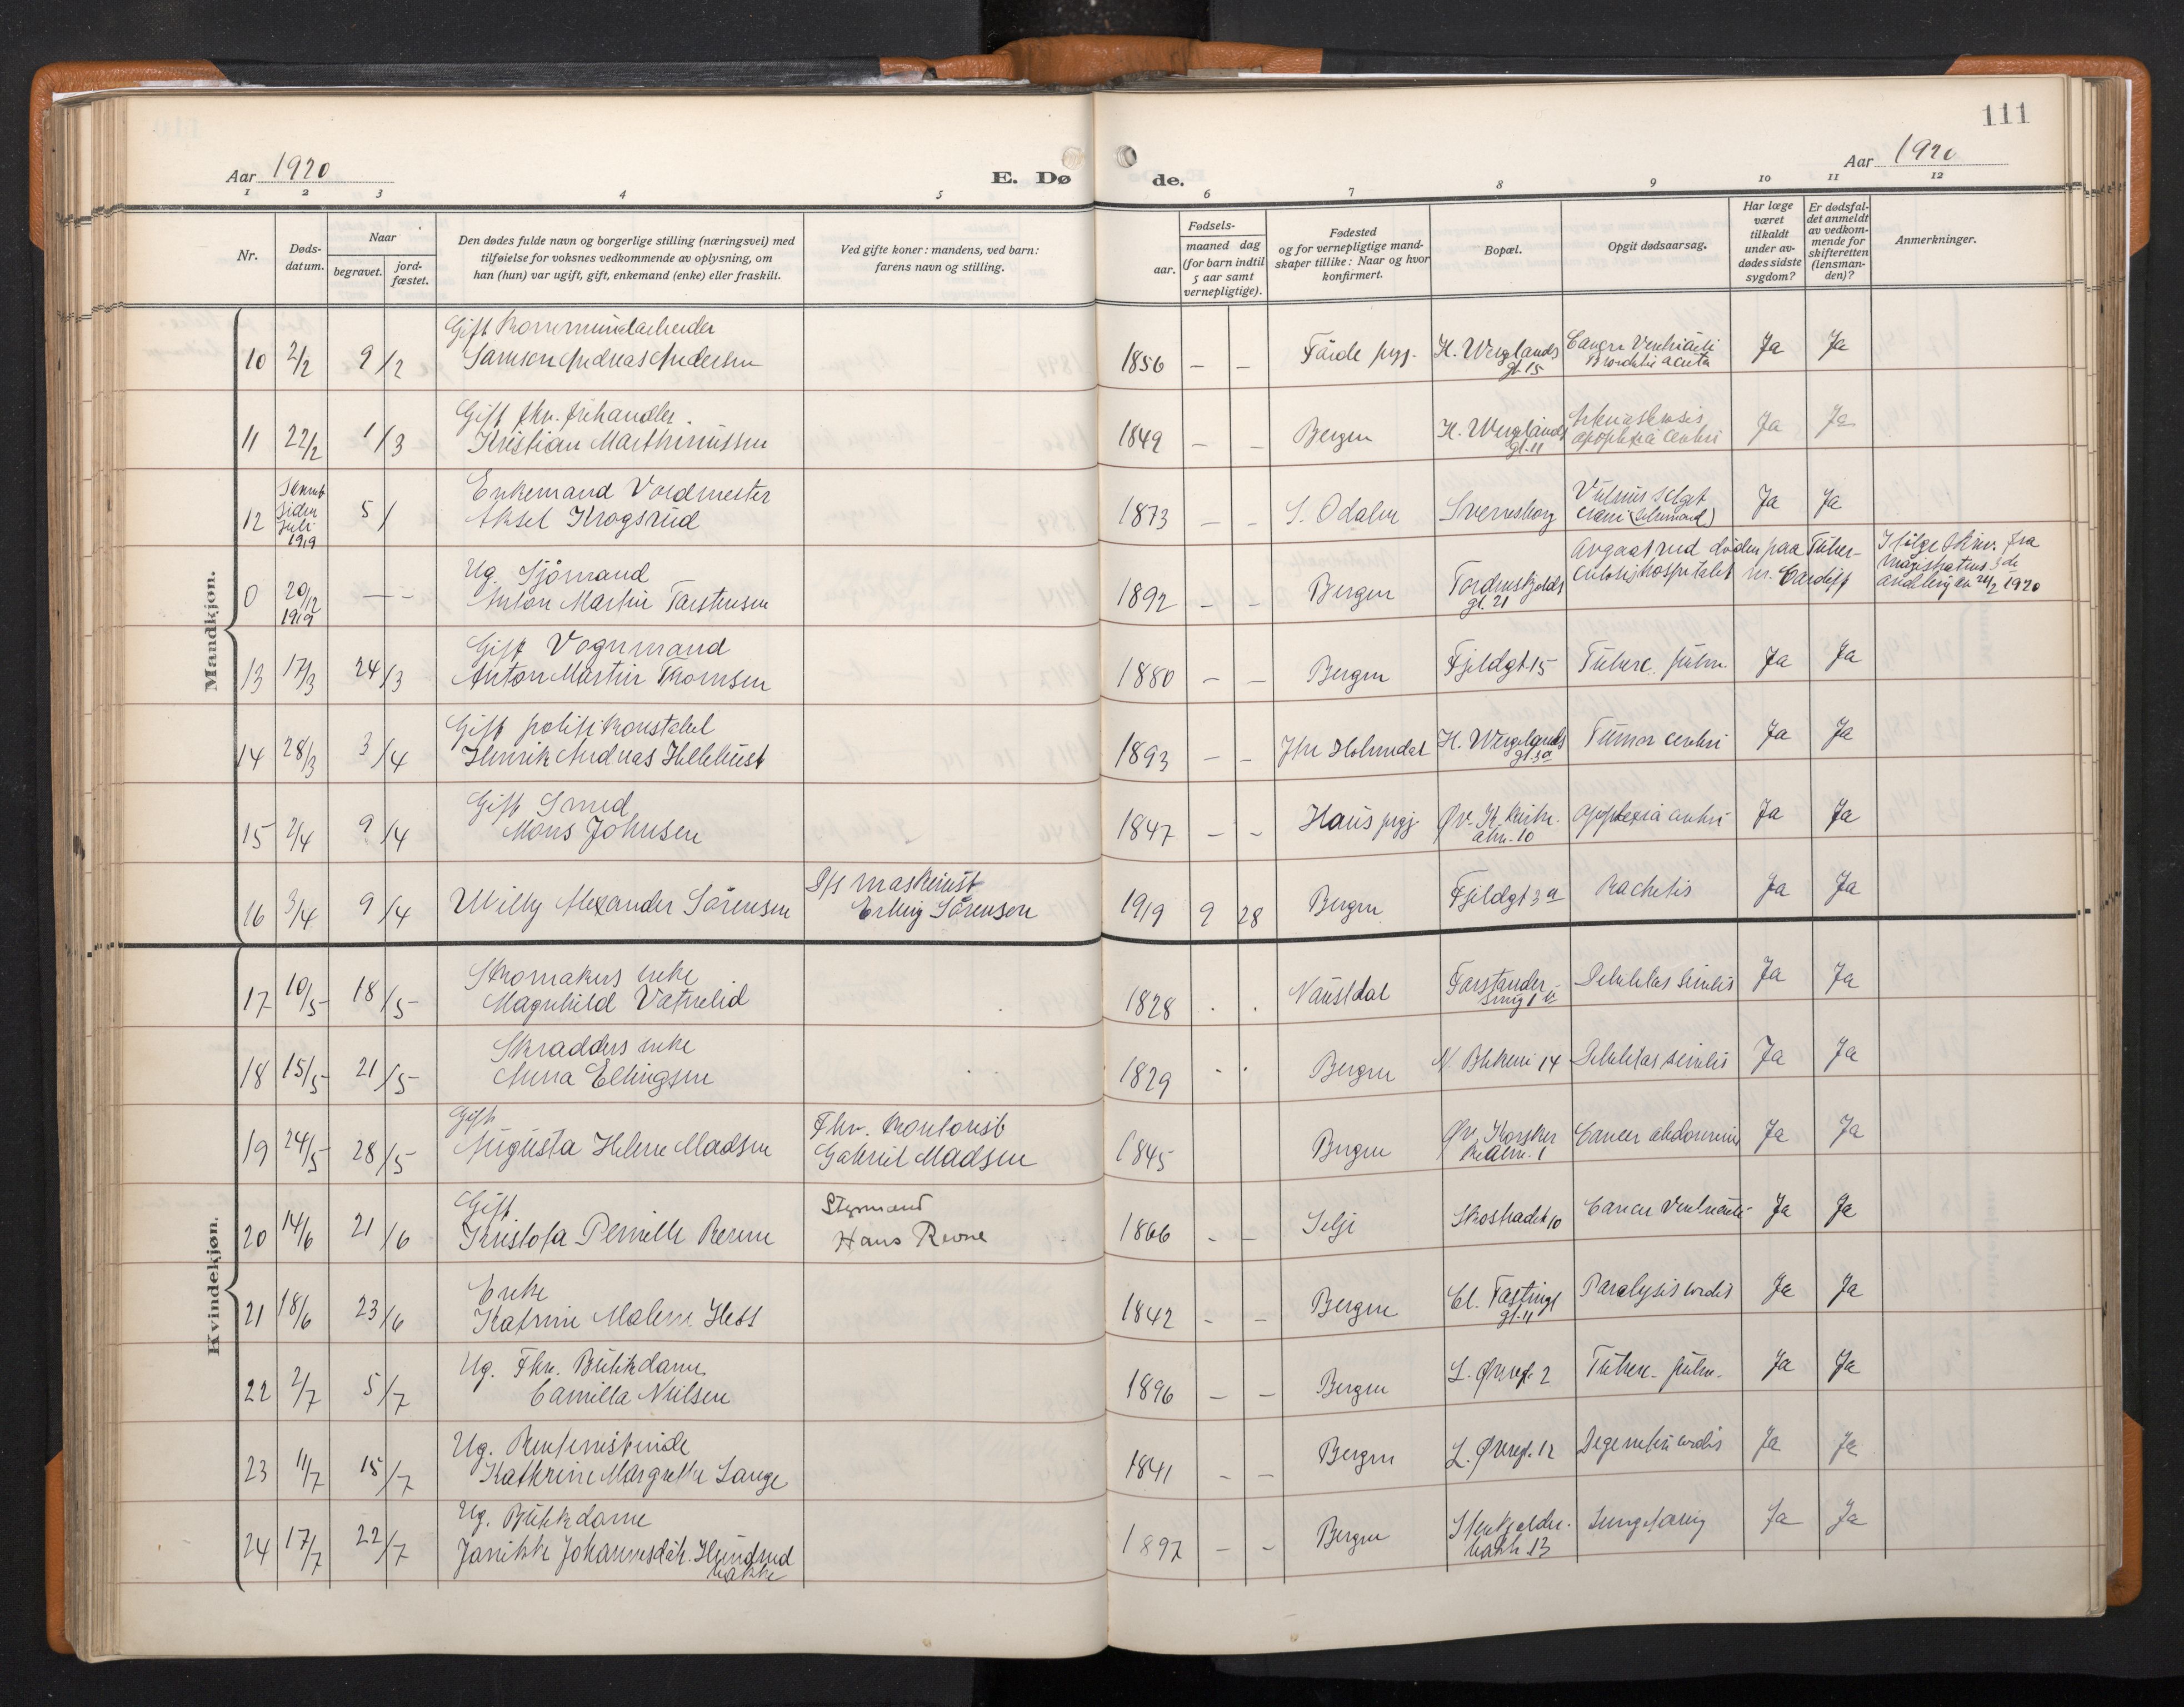 111
Aar 1920
E. Dø de.
Aar 1920
1 2 3 4 5 6 7 8 9 10 11 12
Nr.
Døds-
datum.
Naar
begravet.
jord-
fæstet.
Den dødes fulde navn og borgerlige stilling (næringsvei) med
tilføielse for voksnes vedkommende av oplysning, om
han (hun) var ugift, gift, enkemand (enke) eller fraskilt.
Ved gifte koner: mandens, ved barn:
farens navn og stilling.
Fødsels-
aar.
maaned dag
(for barn indtil
5 aar samt
vernepligtige).
Fødested
og for vernepligtige mand-
skaper tillike: Naar og hvor
konfirmert.
Bopæl.
Opgit dødsaarsag.
Har læge
været
tilkaldt
under av-
dødes sidste
sygdom?
Er dødsfal-
det anmeldt
av vedkom-
mende for
skifteretten
(lensman-
den)?
Anmerkninger.
Mandkjøn.
Gift Kommunearbeider
10 2/2 9/2 Samson Andreas Andersen 1856 – – Førde prgj. H. Wergelands Cancer Ventriculi Ja Ja
gt. 15 Bronchitis acuta
Gift fhv. frihandler.
11 22/2 1/3 Kristian Marthinussen 1849 – – Bergen H. Wergelands Arteriosklerosis Ja Ja
gt. 11 apoplexia cerebri
Savnet
siden
juli
1919
Enkemand Vordmester
12 5/ Aksel Krogsrud 1873 – – S. Odalen Sverresborg Vulnus sclopet Ja Ja
cranii (selvmord)
Ug. Sjömand
0 20/12 1919 – – Anton Martin Torstensen 1892 – – Bergen Tordenskjolds
gt. 21
Avgaat ved døden paa Tuber-
culosishospitalet nr. Cardiff
Ifölge skriv. fra
Magistratens 3de
avdeling av 24/2 1920
Gift Vognmand
13 17/3 24/3 Anton Martin Thomsen 1880 – – Bergen Fjeldgt. 15 Tuberc. pulm Ja Ja
Gift politikonstabel
14 28/3 3/4 Henrik Andreas Hellekust 1893 – – Ytre Holmedal H. Wergelands Tumor cerebri Ja Ja
gt. 3a
Gift Smed
15 2/4 9/4 Mons Johnsen 1847 – – Haus prgj. Øv. K. kirke. apoplexia cerebri Ja Ja
alm. 10
D/s maskinist
16 3/4 9/4 Willy Alexander Sörensen Erling Sörensen 1919 9 28 Bergen Fjeldgt 3a Rachitis Ja Ja
Kvindekjøn.
Skomakers enke
17 10/5 18/5 Magnhild Vatnelid 1828 . . Naustdal Forstander- Debilitas senilis Ja Ja
smug 1
Skradders enke
18 15/5 21/5 Anna Ellingsen 1829 . . Bergen N. Blekevei 14 Debilitas senilis Ja Ja
Gift Fhv. Kontorist
19 24/5 28/5 Augusta Helene Madsen Gabriel Madsen 1845 Bergen Øv. Korskir Cancer abdominis Ja Ja
ke Alm. 1
Gift Styrmand
20 14/6 21/6 Kristofa Pernille Revne Hans Revne 1866 – – Selje Skostrædet 10 Cancer Ventriculi Ja Ja
Enke
21 18/6 23/6 Katrine Malene Hess 1842 – – Bergen Cl. Fastings Paralysis cordis Ja Ja
gt. 11
Ug. Fhv. Butikdame
22 2/7 5/7 Camilla Nielsen 1896 – – Bergen L. Øvregt. 2 Tuberc. pulm. Ja Ja
Ug. Rentenistinde
23 11/7 15/7 Kathrine Margrethe Lange 1841 – – Bergen L. Øvregt. 12 Degeneratio cordis Ja Ja
Ug. Butikkdame
24 17/7 22/7 Janikke Johannesdtr. Hundsnd 1897 – – Bergen Stenkjelder. Lungetæring Ja Ja
bakke bakk. 13